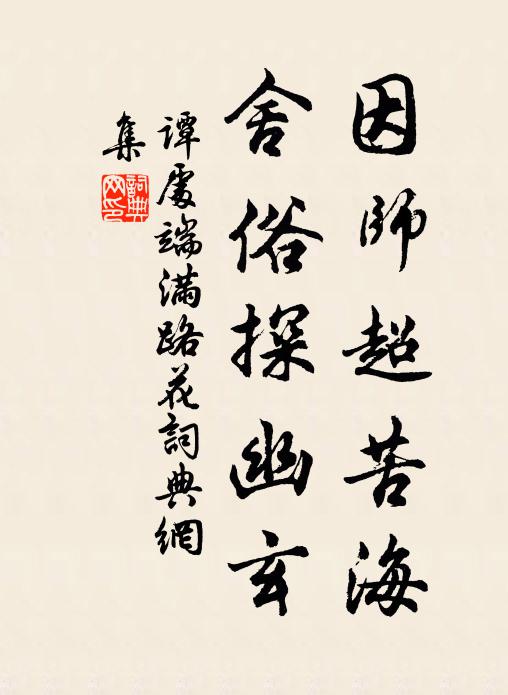 因師超苦海
舍俗探幽玄
谭處端满路花詞典網
集
詞典網印